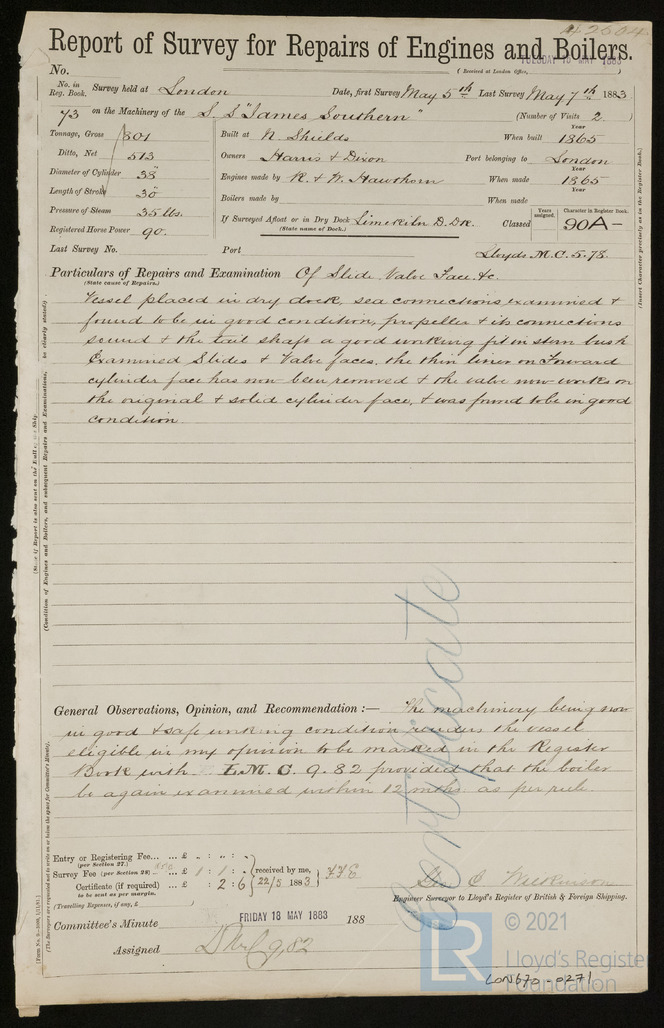 2604
Report of Survey for Repairs of Engines and Boilers.
TUESDAY 15 MAY 1883
No. (Received at London Office, )
No. in Reg. Book. Survey held at London Date, first Survey May 5th Last Survey May 7th 1883
73 on the Machinery of the S.S "James Southern" (Number of Visits 2.
Tonnage, Gross 801 Built at N. Shields When built Year 1865
Ditto, Net 513 Owners Harris & Dixon Port belonging to London
Diameter of Cylinder 38" Engines made by R. & W. Hawthorn When made Year 1865
Length of Stroke 30" Boilers made by When made
Pressure of Steam 35 lbs. If Surveyed Afloat or in Dry Dock Limekiln D. Dk. Classed Years assigned. Character in Register Book. 90A-
(State name of Dock.)
Registered Horse Power 90.
Last Survey No. Port Lloyds M.C. 5.78.
Particulars of Repairs and Examination Of Slide Valve Face &c.
(State cause of Repairs.)
Vessel placed in dry dock, sea connections examined &
found to be in good condition, propeller & its connections
sound & the tail shaft a good working fit in stern bush
Examined Slides & Valve faces, the thin liner on Forward
cylinder face has now been removed & the valve now works on
the original & solid cylinder face, & was found to be in good
condition.
(Insert Character precisely as in the Register Book.)
(Condition of Engines and Boilers, and subsequent Repairs and Examinations, to be clearly stated).
Certificate
General Observations, Opinion, and Recommendation :— The machinery being now
in good & safe working condition renders the vessel
eligible in my opinion to be marked in the Register
Book with L.M.C. 9.82 provided that the boiler
be again examined within 12 mths. as per rule.
Entry or Registering Fee... ... £ : :
(per Section 27.)
Survey Fee (per Section 28) ... £ 1 : 1 : received by me,
Certificate (if required) ... £ : 2 : 6 22/5 1883
to be sent as per margin.
(Travelling Expenses, if any, £ )
Geo C Wilkinson
Engineer Surveyor to Lloyd's Register of British & Foreign Shipping.
Committee's Minute FRIDAY 18 MAY 1883 188
Assigned 9.82
© 2021
Lloyd's Register
Foundation
LON670-0271